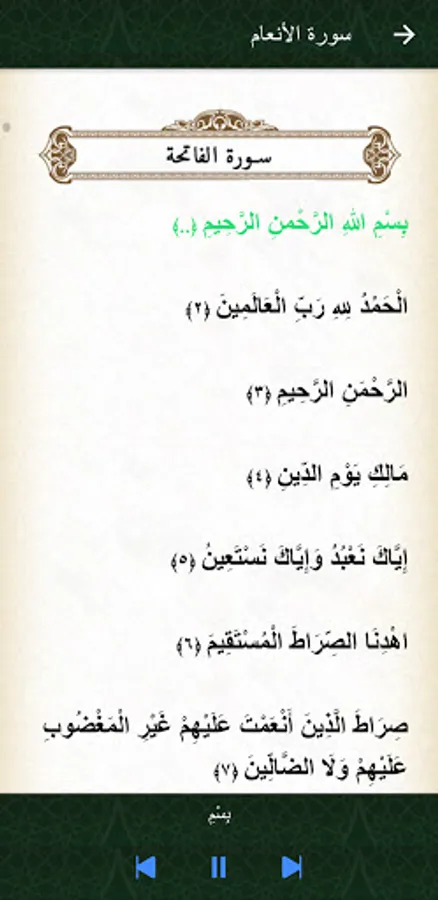 سورة الأنعام
سورة الفاتحة
بِسْمِ اللهِ الرَّحْمنِ الرَّحِيمِ ﴿..﴾
الْحَمْدُ لِلهِ رَبِّ الْعَالَمِينَ ﴿٢﴾
الرَّحْمَنِ الرَّحِيمِ ﴿٣﴾
مَالِكِ يَوْمِ الدِّينِ ﴿٤﴾
إِيَّاكَ نَعْبُدُ وَإِيَّاكَ نَسْتَعِينُ ﴿٥﴾
اهْدِنَا الصِّرَاطَ الْمُسْتَقِيمَ ﴿٦﴾
صِرَاطَ الَّذِينَ أَنْعَمْتَ عَلَيْهِمْ غَيْرِ الْمَغْضُوبِ
عَلَيْهِمْ وَلَا الضَّالِّينَ ﴿٧﴾
بِسْمِ